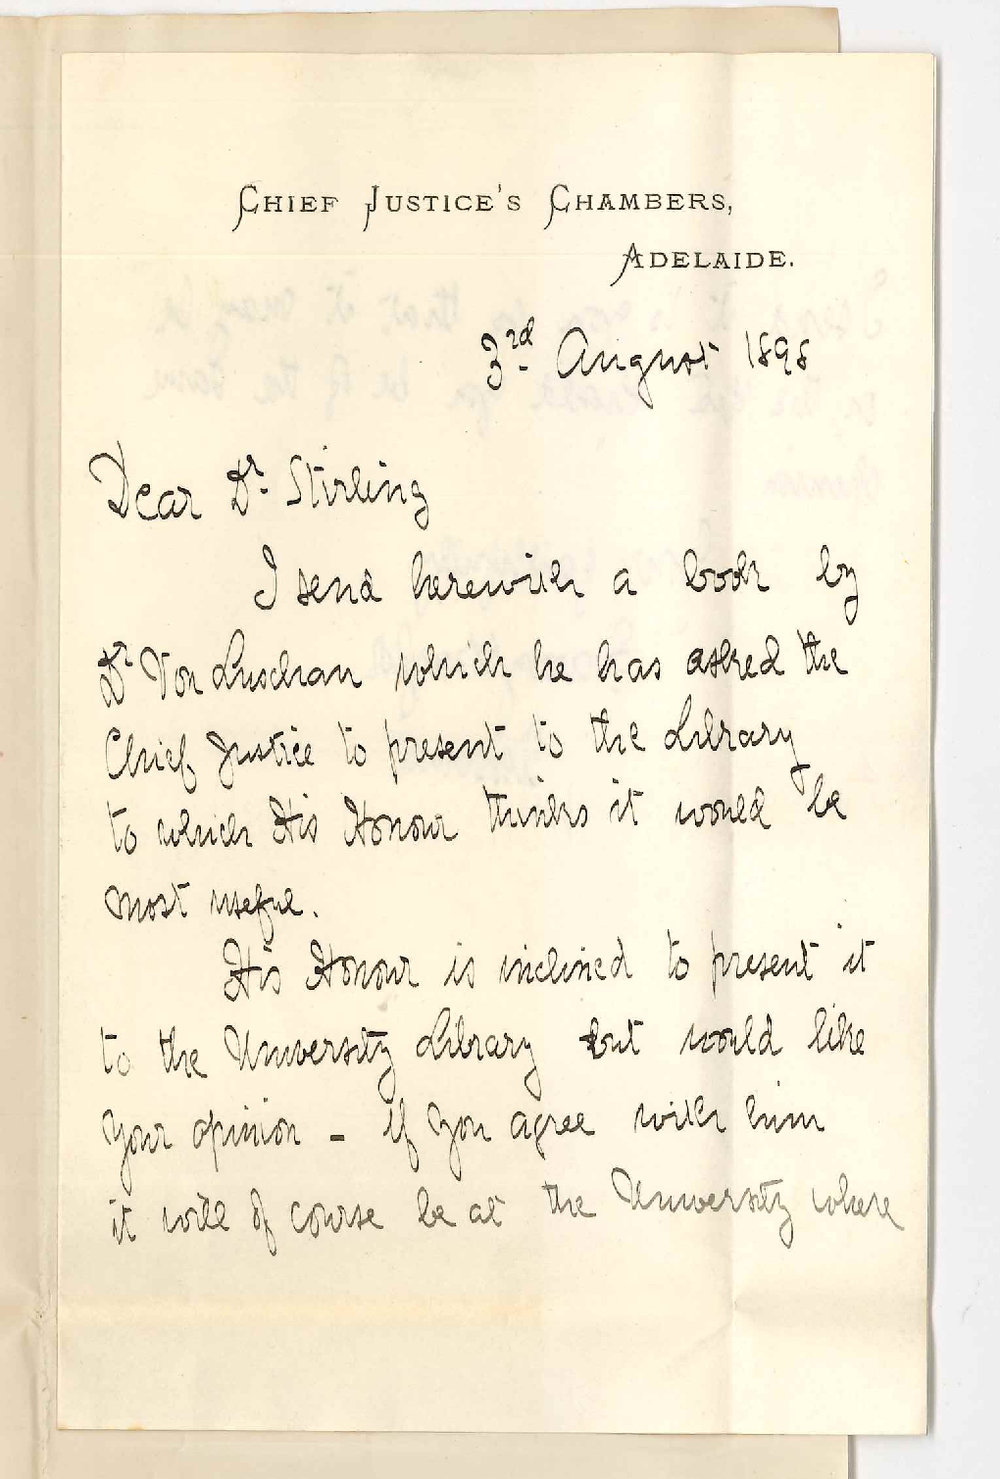 CHIEF JUSTICE'S CHAMBERS,
ADELAIDE.
3rd August 1898
Dear Dr. Stirling
I send herewith a book by
Dr Von Luschan which he has asked the
Chief Justice to present to the Library
to which His Honour thinks it would be
most useful.
His Honour is inclined to present it
to the University Library but would like
your opinion - if you agree with him
it will of course be at the University where